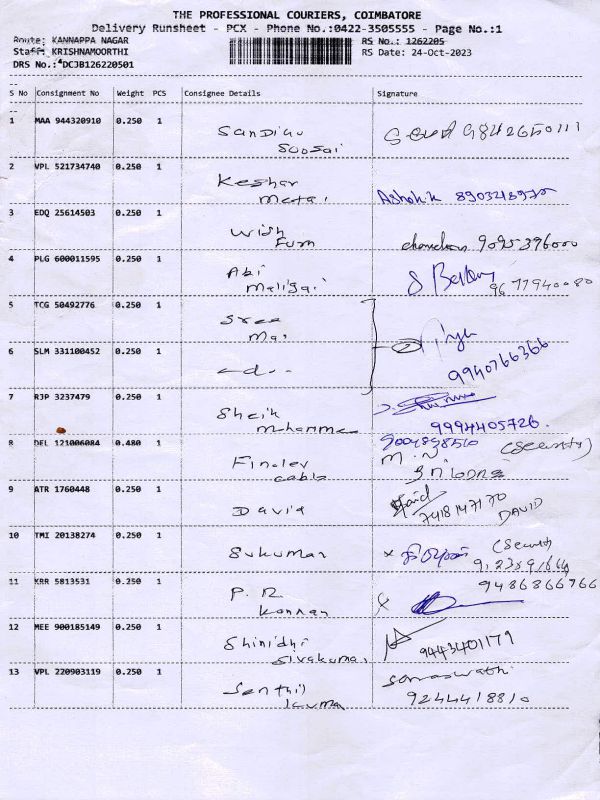 THE PROFESSIONAL COURIERS, COIMBATORE
Delivery Runsheet - PCX - Phone No.:0422-3505555 - Page No.:1
Route: KANNAPPA NAGAR RS No.: 1262205
Staff: KRISHNAMOORTHI RS Date: 24-Oct-2023
DRS No.: DCJB126220501
S No Consignment No Weight PCS Consignee Details Signature
1 MAA 944320910 0.250 1
9842650111
Suosai
2 VPL 521734740 0.250 1
Keshar
Ashok.k
3 EDQ 25614503 0.250 1
Wish
Furn 9095396000
4 PLG 600011595 0.250 1
Abi
Maligai 9677940080
5 TCG 50492776 0.250 1
Sree
Mai
6 SLM 331100452 0.250 1
9940766366
7 RJP 3237479 0.250 1
Sheik
9994405726.
8 DEL 121006084 0.480 1
(Security)
M.N
Finoley
cable
9 ATR 1760448 0.250 1
David
7418147170
DAVID
10 TMI 20138274 0.250 1
Sukumar
11 KRR 5813531 0.250 1
9486866766
P. R
Kannan
12 MEE 900185149 0.250 1
Shinidhi
Sivakumar 9443401179
13 VPL 220903119 0.250 1
Senthil Saraswathi
kumar 9244418810